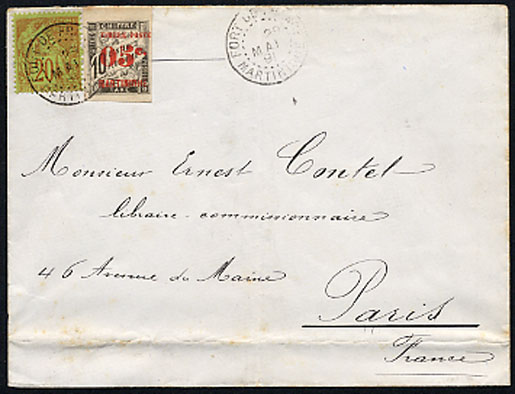 20
CHIFFRE
TIMBRE-POSTE
10 05c
MARTINIQUE
TAXE
FORT DE
28
MAI
91
MARTINIQUE
Monsieur Ernest Contel
libraire-commissionnaire
46 Avenue du Maine
Paris
France